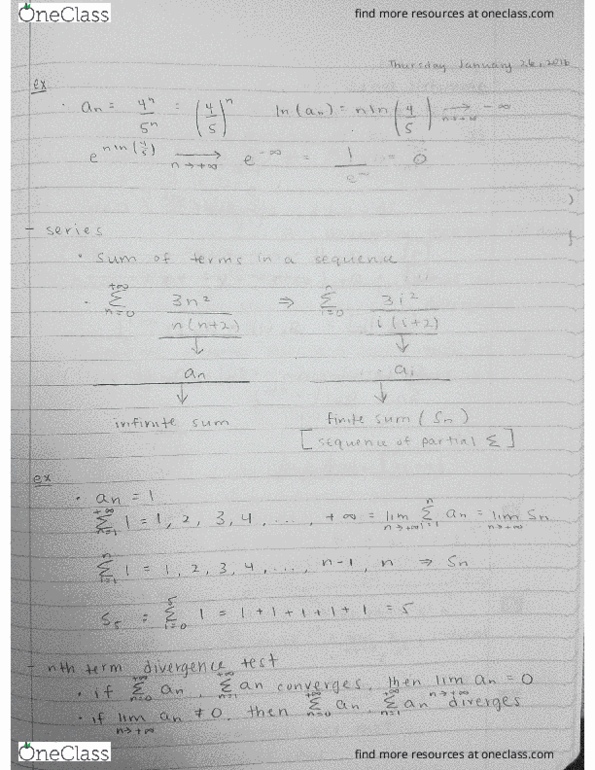 OneClass find more resources at oneclass.com
Thursday, January 26, 2016
ex
· an = 4ⁿ/5ⁿ = (4/5)ⁿ ln(an) = n ln(4/5) → n→+∞ -∞
e^(n ln(4/5)) → n→+∞ e^-∞ = 1/e^∞ = 0
- series
· sum of terms in a sequence
· +∞ Σ n=0 3n²/n(n+2) ⇒ n Σ i=0 3i²/i(i+2)
↓ ↓
an ai
↓ ↓
infinite sum finite sum (Sn)
[sequence of partial Σ]
ex
· an = 1
+∞ Σ n=1 1 = 1, 2, 3, 4, ..., +∞ = lim n→+∞ n Σ i=1 an = lim n→+∞ Sn
n Σ i=1 1 = 1, 2, 3, 4, ..., n-1, n ⇒ Sn
S5 = 5 Σ i=0 1 = 1+1+1+1+1 = 5
- nth term divergence test
· if +∞ Σ n=0 an, +∞ Σ n=1 an converges, then lim n→+∞ an = 0
· if lim n→+∞ an ≠ 0, then +∞ Σ n=0 an, +∞ Σ n=1 an diverges
OneClass find more resources at oneclass.com